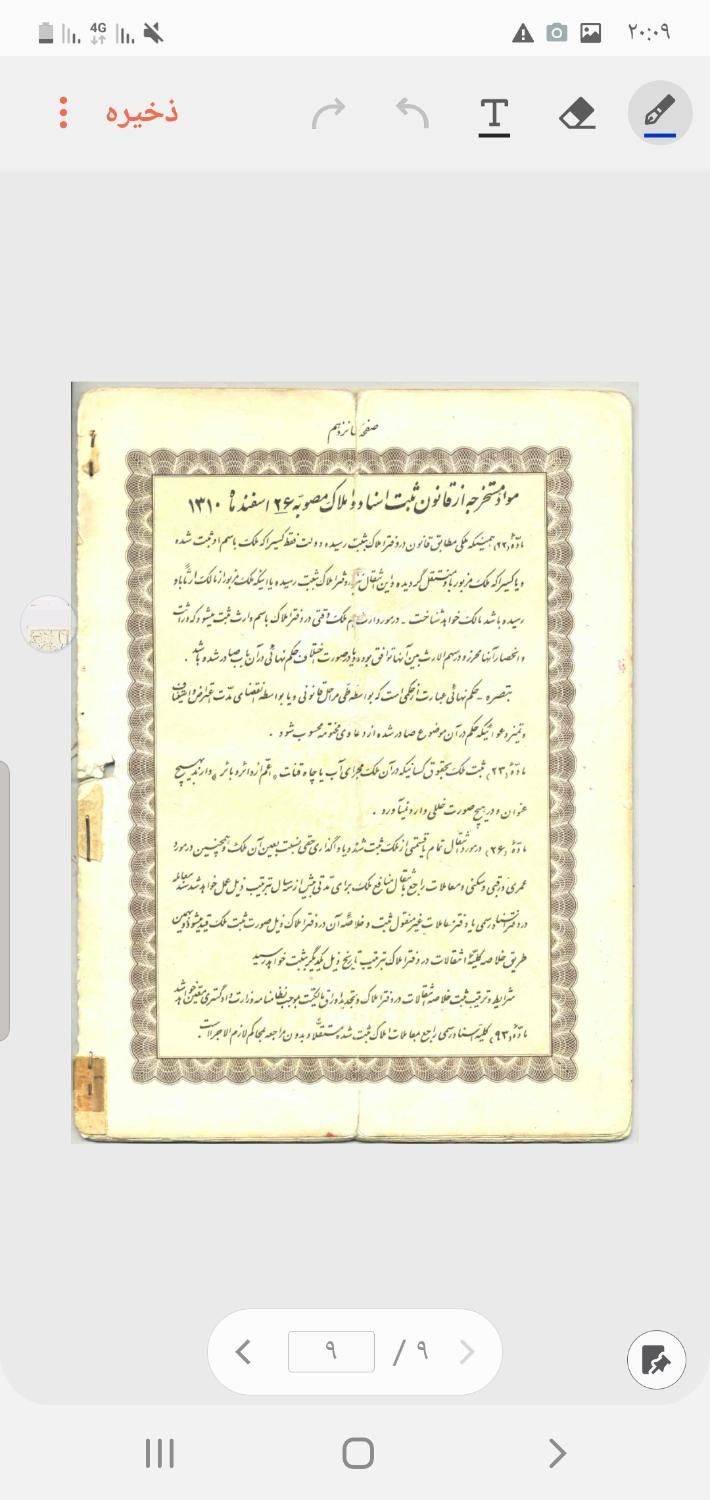 ۲۰:۰۹
4G
ذخیره
T
صفحه پانزدهم
مواد مستخرجه از قانون ثبت اسناد و املاک مصوبه ۲۶ اسفند ماه ۱۳۱۰
ماده (۲۲) همینکه ملکی مطابق قانون در دفتر املاک بثبت رسید دولت فقط کسیرا که ملک باسم او ثبت شده
و یا کسیرا که ملک مزبور باو منتقل گردیده و این انتقال نیز در دفتر املاک بثبت رسیده یا اینکه ملک مزبور از مالک ارثاً باو
رسیده باشد مالک خواهد شناخت ـ در مورد ارث هم ملک وقتی در دفتر املاک باسم وراث ثبت میشود که وراثت
و انحصار آنها محرز و در سهم الارث بین آنها توافق بوده و یا در صورت اختلاف حکم نهائی در آن باب صادر شده باشد .
تبصره ـ حکم نهائی عبارت از حکمی است که بواسطه طی مراحل قانونی و یا بواسطه انقضای مدت اعتراض و استیناف
و تمیز دعوائیکه حکم در آن موضوع صادر شده از دعاوی مختومه محسوب شود .
ماده (۲۳) ثبت ملک بحقوق کسانیکه در آن ملک مجرای آب یا چاه قنات (اعم از دائر و بائر) دارند بهیچ
عنوان و در هیچ صورت خللی وارد نمیآورد .
ماده (۲۶) در مورد انتقال تمام یا قسمتی از ملک ثبت شده و یا واگذاری حقی نسبت بعین آن ملک و همچنین در مورد
عمری و رقبی و سکنی و معاملات راجع بانتقال منافع ملک برای مدتی بیش از سه سال بترتیب ذیل عمل خواهد شد سند معامله
در دفتر اسناد رسمی یا دفتر معاملات غیر منقول ثبت و خلاصه آن در دفتر املاک ذیل صورت ثبت ملک قید میشود و بهمین
طریق خلاصه کلیه انتقالات در دفتر املاک بترتیب تاریخ ذیل یکدیگر ثبت خواهد رسید
شرایط و ترتیب ثبت خلاصه انتقالات در دفتر املاک و تجدید اوراق مالکیت بموجب نظامنامه وزارت دادگستری معین خواهد شد
ماده (۹۳) کلیه اسناد رسمی راجع بمعاملات املاک ثبت شده مستقلاً و بدون مراجعه بمحاکم لازم الاجرا است
۹ / ۹